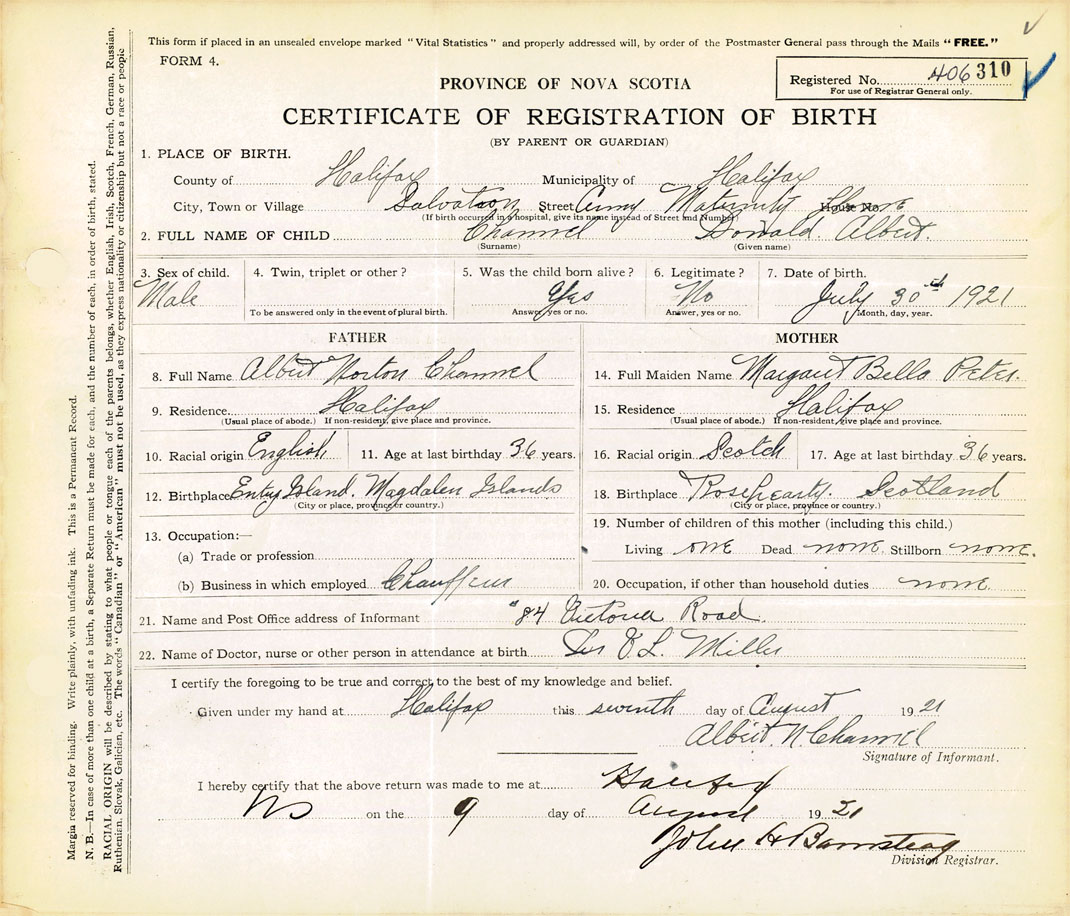 This form if placed in an unsealed envelope marked "Vital Statistics" and properly addressed will, by order of the Postmaster General pass through the Mails "FREE."
FORM 4.
Registered No. 406310
For use of Registrar General only.
PROVINCE OF NOVA SCOTIA
CERTIFICATE OF REGISTRATION OF BIRTH
(BY PARENT OR GUARDIAN)
1. PLACE OF BIRTH.
County of Halifax Municipality of Halifax
City, Town or Village Salvation Street Army Maternity House No. Home
(If birth occurred in a hospital, give its name instead of Street and Number)
2. FULL NAME OF CHILD Channel Donald Albert.
(Surname) (Given name)
3. Sex of child. 4. Twin, triplet or other? 5. Was the child born alive? 6. Legitimate? 7. Date of birth.
Male Yes No July 30th 1921
To be answered only in the event of plural birth. Answer, yes or no. Answer, yes or no. Month, day, year.
FATHER
8. Full Name Albert Norton Channel
9. Residence Halifax
(Usual place of abode.) If non-resident, give place and province.
10. Racial origin English 11. Age at last birthday 36 years.
12. Birthplace Entry Island. Magdalen Islands
(City or place, province or country.)
13. Occupation:—
(a) Trade or profession
(b) Business in which employed Chauffeur
MOTHER
14. Full Maiden Name Margaret Bella Peter.
15. Residence Halifax
(Usual place of abode.) If non-resident, give place and province.
16. Racial origin Scotch 17. Age at last birthday 36 years.
18. Birthplace Rosehearty. Scotland
(City or place, province or country.)
19. Number of children of this mother (including this child.)
Living one Dead none. Stillborn none.
20. Occupation, if other than household duties none.
21. Name and Post Office address of Informant "84 Victoria Road.
22. Name of Doctor, nurse or other person in attendance at birth L. Miller
I certify the foregoing to be true and correct to the best of my knowledge and belief.
Given under my hand at Halifax this seventh day of August 1921
Albert N. Channel
Signature of Informant.
I hereby certify that the above return was made to me at Halifax
NS on the 9 day of August 1921
John H Barnstead
Division Registrar.
Margin reserved for binding. Write plainly, with unfading ink. This is a Permanent Record.
N. B.—In case of more than one child at a birth, a Separate Return must be made for each, and the number of each, in order of birth, stated.
RACIAL ORIGIN will be described by stating to what people or tongue each of the parents belongs, whether English, Irish, Scotch, French, German, Russian,
Ruthenian, Slovak, Galician, etc. The words "Canadian" or "American" must not be used, as they express nationality or citizenship but not a race or people